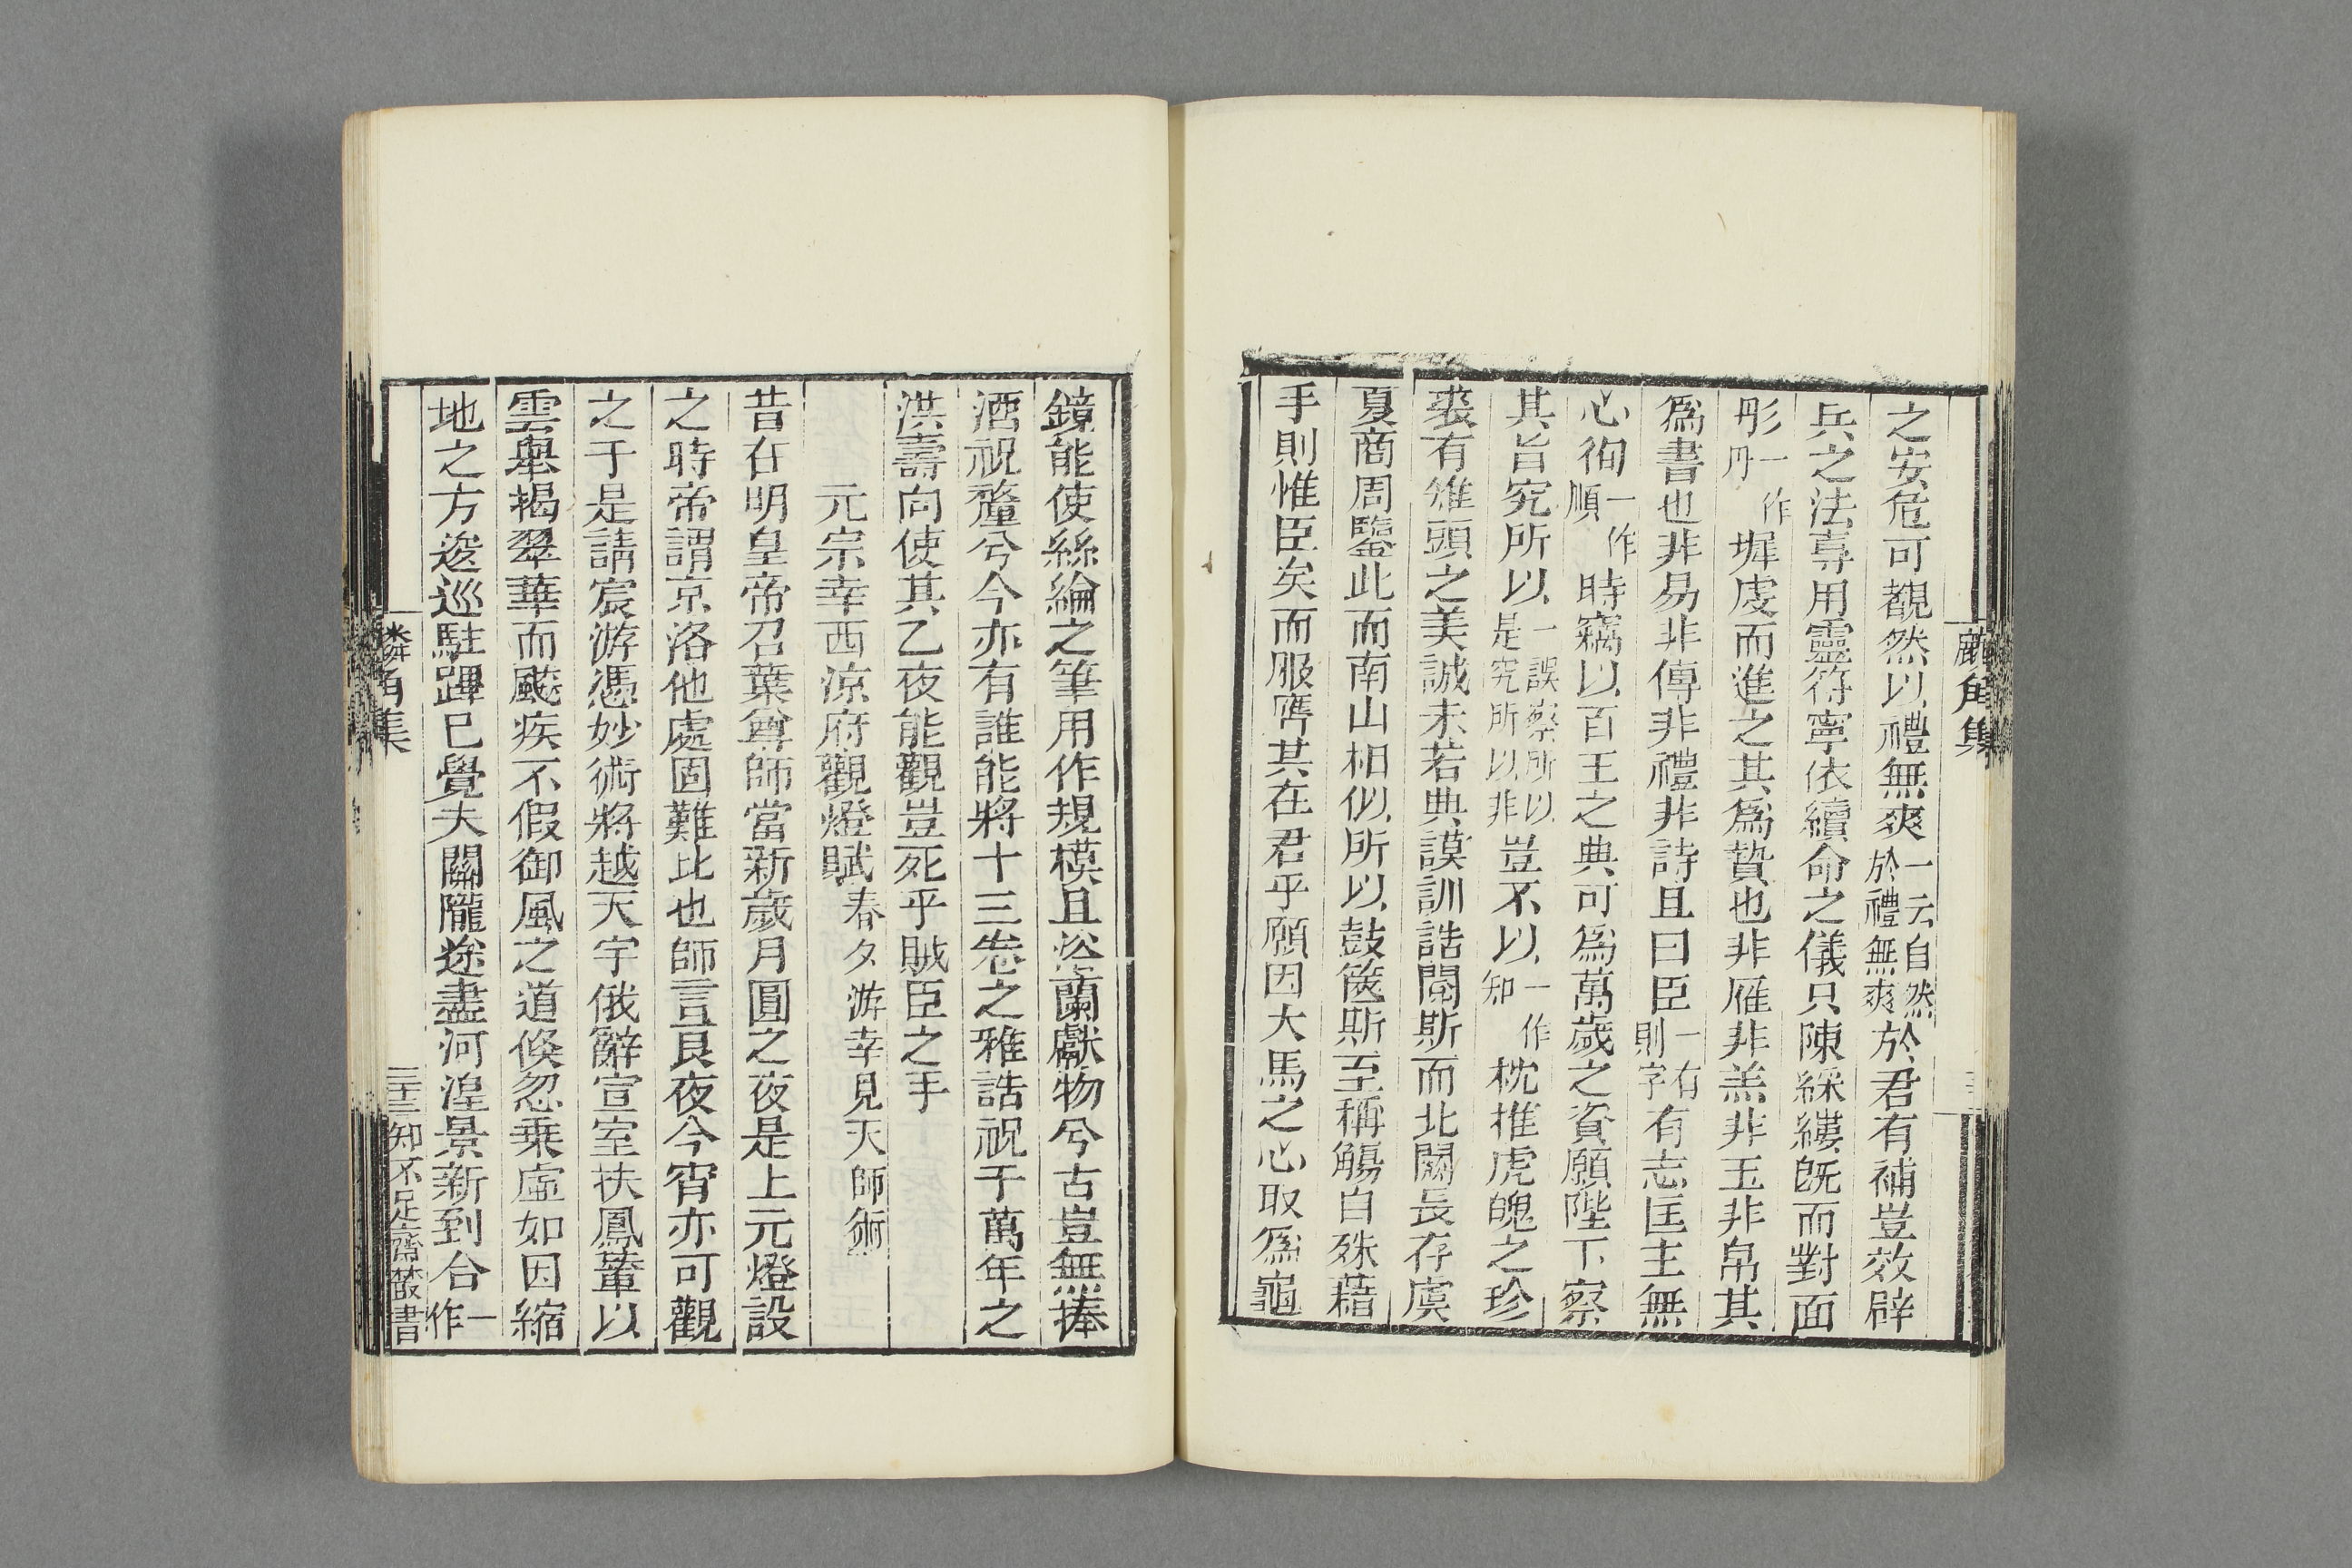 之安危可覩然以禮無爽一云自然於禮無爽於君有補豈效辟
兵之法專用靈符寧依續命之儀只陳綵縷旣而對面
彤一作丹墀虔而進之其爲贄也非雁非羔非玉非帛其
爲書也非易非傳非禮非詩且曰臣一有則字有志匡主無
心徇一作順時竊以百王之典可爲萬歲之資願陛下察
其旨究所以一誤察所以是究所以非豈不以一作知枕推虎魄之珍
裘有雉頭之美誠未若典謨訓誥閱斯而北闕長存虞
夏商周鑒此而南山相似所以鼓篋斯至稱觴自殊藉
手則惟臣矣而服膺其在君乎願因犬馬之心取爲龜
鏡能使絲綸之筆用作規模且浴蘭獻物兮古豈無捧
酒祝釐兮今亦有誰能將十三卷之雅誥祝千萬年之
洪壽向使其乙夜能觀豈死乎賊臣之手
元宗幸西涼府觀燈賦春夕游幸見天師術
昔在明皇帝召葉尊師當新歲月圓之夜是上元燈設
之時帝謂京洛他處固難比也師言良夜今宵亦可觀
之于是請宸游憑妙術將越天宇俄辭宣室扶鳳輦以
雲舉揭翠華而飈疾不假御風之道倏忽乘虛如因縮
地之方逡巡駐蹕已覺夫關隴途盡河湟景新到合一作
麟角集
三十三
知不足齋叢書